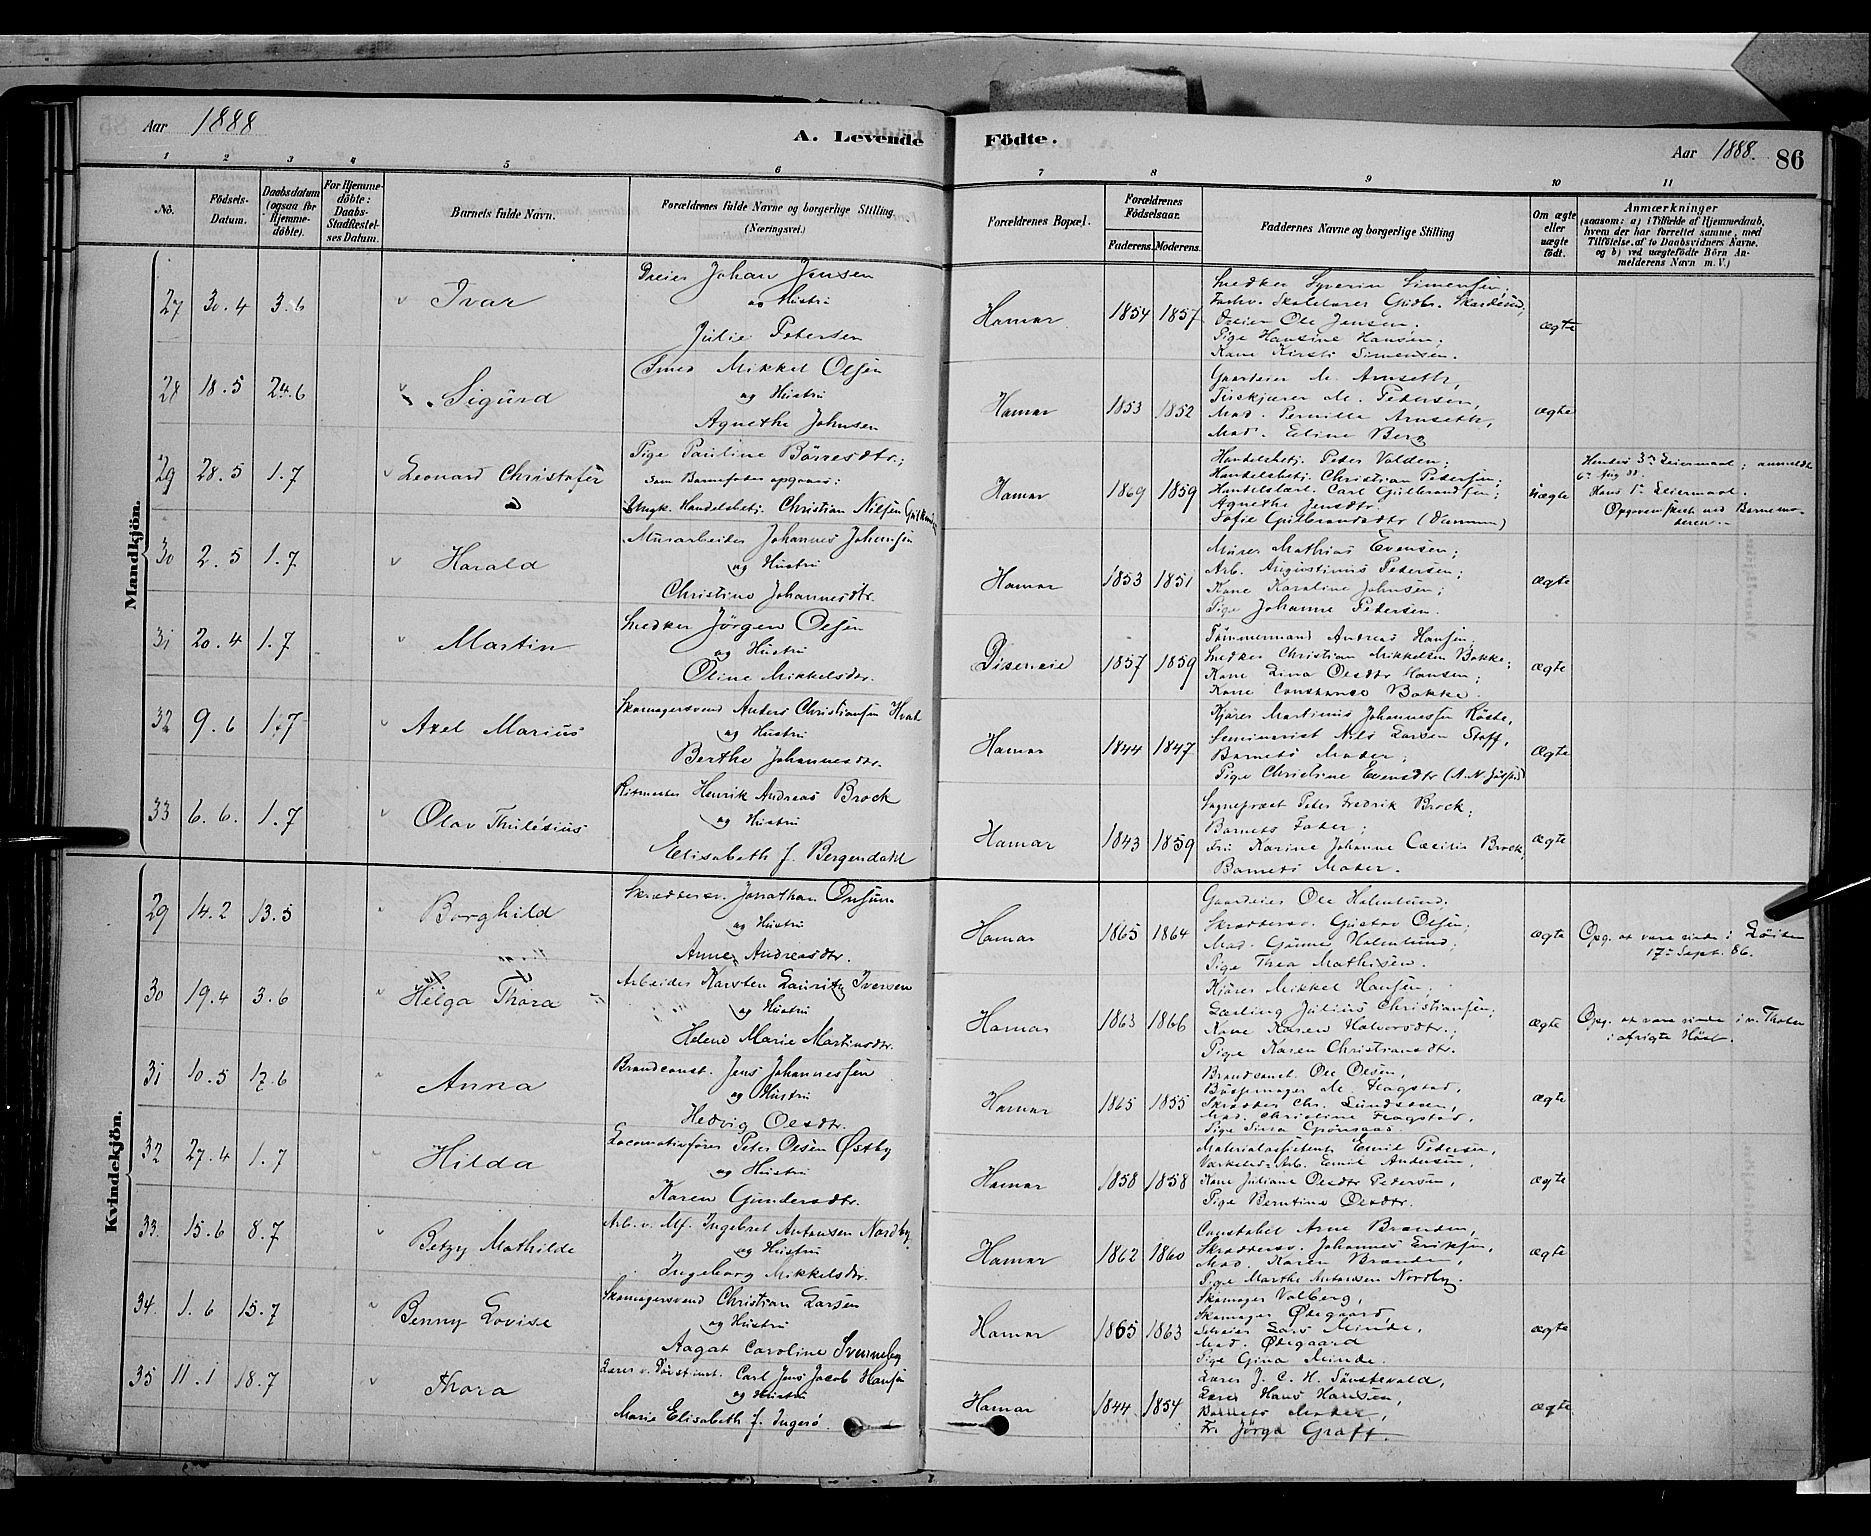 Aar 1888
A. Levende
Födte.
Aar 1888. 86
1 2 3 4 5 6 7 8 9 10 11
No.
Födsels-Datum.
Daabsdatum (ogsaa for Hjemme-döbte).
For Hjemme-döbte: Daabs-Stadfæstel-ses Datum.
Barnets fulde Navn.
Forældrenes fulde Navne og borgerlige Stilling (Næringsvei.)
Forældrenes Bopæl.
Forældrenes Födselsaar.
Faderens. Moderens.
Faddernes Navne og borgerlige Stilling
Om ægte eller uægte födt.
Anmærkninger
(saasom: a) i Tilfælde af Hjemmedaab,
hvem der har forrettet samme, med
Tilföielse af to Daabsvidners Navne.
og b) ved uægtefödte Börn An-
melderens Navn m. V.)
Mandkjön.
27 30.4 3.6 Ivar
Dreier Johan Jensen
og Hustru
Julie Petersen
Hamar 1854 1857
Snedker Syverin Simensen;
Dreier Ole Jensen.
Pige Hansine Hansen;
Kone Kirsti Simensen.
ægte
28 18.5 24.6 Sigurd
Smed Mikkel Olsen
og Hustru
Agnethe Johnsen
Hamar 1853 1852
Gaardeier M. Arnseth,
M. Pedersen,
Mad. Pernille Arnseth,
Mad. Eline Berg
ægte
29 28.5 1.7 Leonard Christofer
Pige Pauline Börresdtr.;
som Barnefader opgaves:
Ungk. Handelsbetj. Christian Nilsen
Hamar 1869 1859
Handelsbetj. Peter Volden;
Handelsbetj. Christian Petersen;
Handelslærl. Carl Gulbrandsen;
Agnethe Jensdtr
Sofie Gulbrandsdtr
uægte
Hendes 3die Leiermaal; anmeldt
6te Aug 88
Hans 1ste Leiermaal.
Opgaven skeet ved Barnemo-
deren.
30 2.5 1.7 Harald
Murarbeider Johannes Johnsen
og Hustru
Christine Johannesdtr.
Hamar 1853 1851
Murer Mathias Evensen;
Arb. Augustinus Petersen;
Kone Karoline Johnsen;
Pige Johanne Petersen.
ægte
31 20.4 1.7 Martin
Snedker Jörgen Olsen
og Hustru
Oline Mikkelsdtr.
Diseneie 1857 1859
Tömmermand Andreas Hansen;
Snedker Christian Mikkelsen Bakke;
Kone Lina Olsdtr Hansen;
Kone Constance Bakke.
ægte
32 9.6 1.7 Axel Marius
Skomagersvend Anders Christiansen
og Hustru
Berthe Johannesdtr.
Hamar 1844 1847
Kjörer Martinus Johannessen Röste,
Seminarist Nils Larsen Staff,
Barnets Moder;
Pige Christine Evensdtr
ægte
33 6.6. 1.7 Olav Thulesius
Ritmester Henrik Andreas Brock
og Hustru
Elisabeth f. Bergendahl
Hamar 1843 1859
Sognepræst Peter Fredrik Brock;
Barnets Fader;
Fru Karine Johanne Cæcilie Brock,
Barnets Moder.
ægte
Kvindekjön.
29 14.2 13.5 Borghild
Skræddersv. Jonathan Onsum
og Hustru
Anne Andreasdtr.
Hamar 1865 1864
Gaardeier Ole Holmlund.
Skræddersv. Gustav Olsen;
Mad. Holmlund;
Pige Thea Mathisen.
ægte
Opg. at være viede i Löiten
17de Sept. 86.
30 19.4 3.6 Helga Thora
Arbeider Karsten Lauritz Iversen
og Hustru
Helene Marie Martinsdtr.
Hamar 1863 1866
Kjörer Mikkel Hansen;
Lærling Julius Christiansen;
Kone Karen Halvorsdtr.;
Pige Karen Christiansdtr.
ægte
Opg. at være viede i v. Thoten
i afvigte Höst.
31 10.5 17.6 Anna
Brandconst. Jens Johannessen
og Hustru
Hedvig Olsdtr.
Hamar 1865 1855
Brandconst. Ole Olsen,
Bössemager M. Flagstad,
Skrædder Chr. Lundsteen,
Mad. Christine Flagstad,
Pige Grönaas.
ægte
32 27.4 1.7 Hilda
Locomotivförer Peter Olsen Østby
og Hustru
Karen Gundersdtr.
Hamar 1858 1858
Materialassistent Emil Pedersen,
Værksted-Arb. Emil Andersen,
Kone Juliane Olsdtr Petersen,
Pige Berntine Olsdtr.
ægte
33. 15.6 8.7 Betzy Mathilde
Arb. v. Mf. Ingebret Antonsen Nordby
og Hustru
Ingeborg Mikkelsdtr.
Hamar 1862 1860
Constabel Arne Branden,
Skræddersv. Johannes Eriksen,
Mad. Karen Branden,
Pige Marthe Antonsen Nordby.
ægte
34. 1.6 15.7 Benny Lovise
Skomagersvend Christian Larsen
og Hustru
Aagot Caroline Svenneby
Hamar 1865 1863
Skomager Volberg,
Skomager Ødegaard,
Selveier Lars Minde,
Mad. Ødegaard
Pige Gina Minde.
ægte
35 11.1 18.7 Thora
Lærer v. Döveinst. Carl Jens Jacob Hansen
og Hustru
Marie Elisabeth f. Ingerö.
Hamar 1844 1854
Lærer J. C. H.
Lærer Hans Hansen,
Barnets Moder,
Fr. Jörga Graff.
ægte